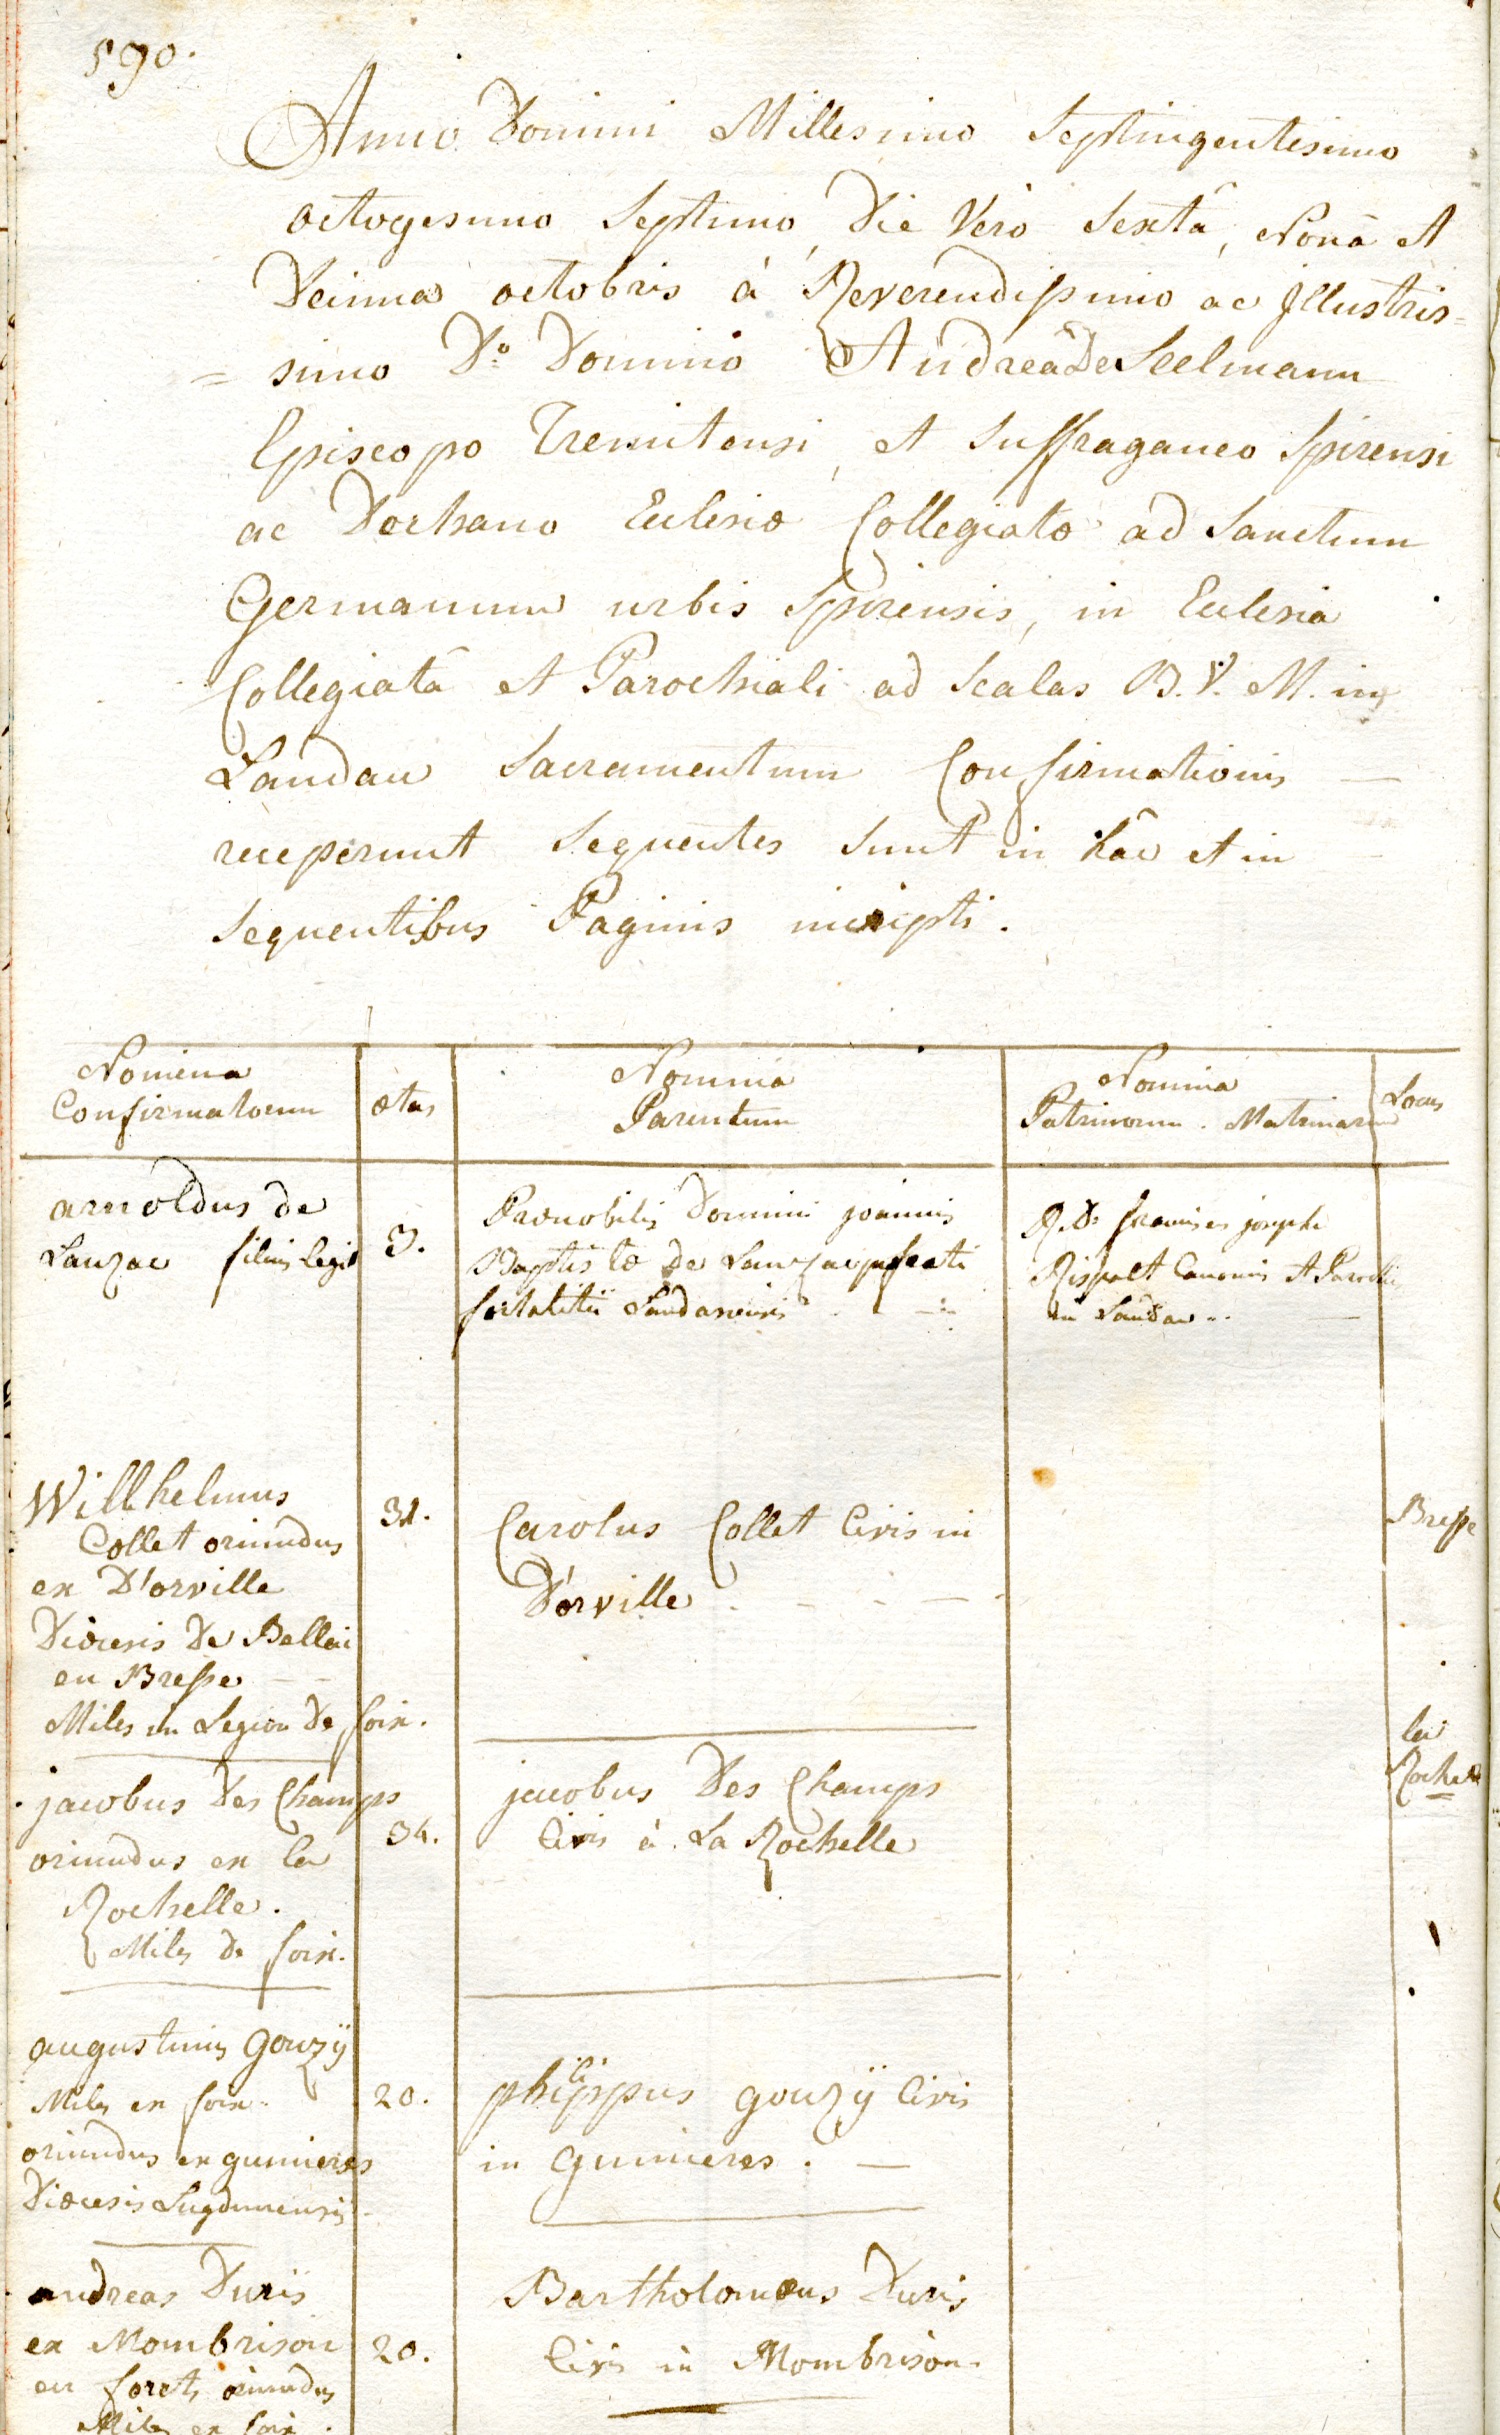 590.
Anno Domini Millesimo Septingentesimo
octogesimo Septimo, Die Vero Sextâ, Nonâ et
Decima octobris à Reverendissimo ac Illustris=
= simo D.o Domino Andreâ De Seelmann
Episcopo Tremitensi, et Suffraganeo Spirensi
ac Dechano Eclesiæ Collegiatæ ad Sanctum
Germanum urbis Spirensis, in Eclesia
Collegiatâ et Parochiali ad Scalas B. V. M. in
Landau Sacramentum Confirmationis —
receperunt Sequentes Sunt in hâc et in
Sequentibus Paginis inscripti.
Nomina
Confirmatorum
ætas
Nomina
Parentum
Nomina
Patrinorum. Matrinarum
Locus
arnoldus de
Lauzac filius legit
3.
Prænobilis Domini joannis
Baptistæ de Lauzac præfecti
fortalitii Landaviensis
R. D. francisci josephi
Rispalt Canonici et Parochi
in Landau..
Willhelmus
Collet oriundus
ex D'orville
Diœcesis De Bellai
en Bresse
Miles in Legion de foix.
31.
Carolus Collet Civis in
D'orville
Bresse
jacobus Des Champs
oriundus ex la
Rochelle.
Miles de foix.
34.
jacobus Des Champs
Civis à La Rochelle
la
Rochelle
augustinus Gouzÿ
Miles ex foix.
oriundus ex gumieres
Diœcesis Lugdunensis
20.
philippus gouzÿ Civis
in Gumieres. —
andreas Duris
ex Mombrison
en forets oriundus
Miles ex foix.
20.
Bartholomæus Duris
Civis in Mombrison.